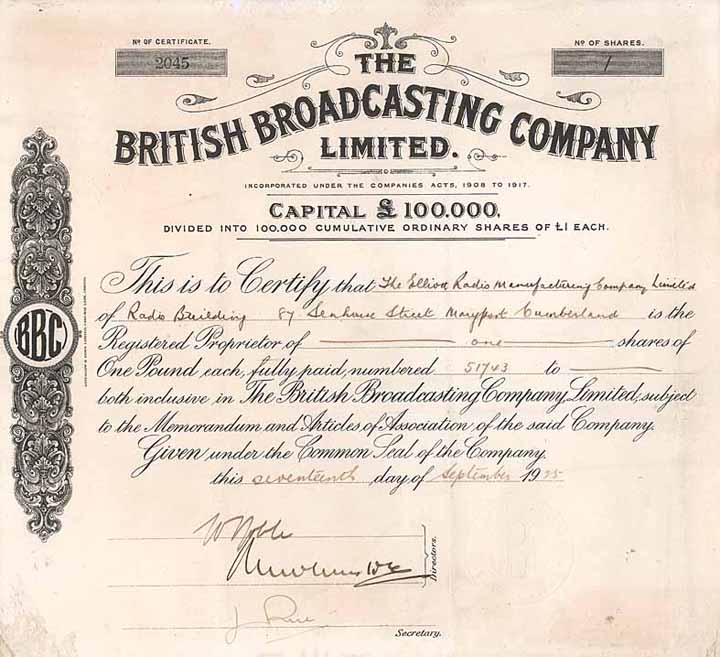 Nº OF CERTIFICATE.
2045
Nº OF SHARES.
1
THE
BRITISH BROADCASTING COMPANY
LIMITED.
INCORPORATED UNDER THE COMPANIES ACTS, 1908 TO 1917.
CAPITAL £100.000,
DIVIDED INTO 100.000 CUMULATIVE ORDINARY SHARES OF £1 EACH.
BBC
This is to Certify that The Elliott Radio Manufacturing Company Limited
of Radio Building 87 Senhouse Street Maryport Cumberland is the
Registered Proprietor of one shares of
One Pound each, fully paid, numbered 51743 to
both inclusive in The British Broadcasting Company, Limited, subject
to the Memorandum and Articles of Association of the said Company.
Given under the Common Seal of the Company,
this seventeenth day of September 1925
W Noble
Directors.
Secretary.